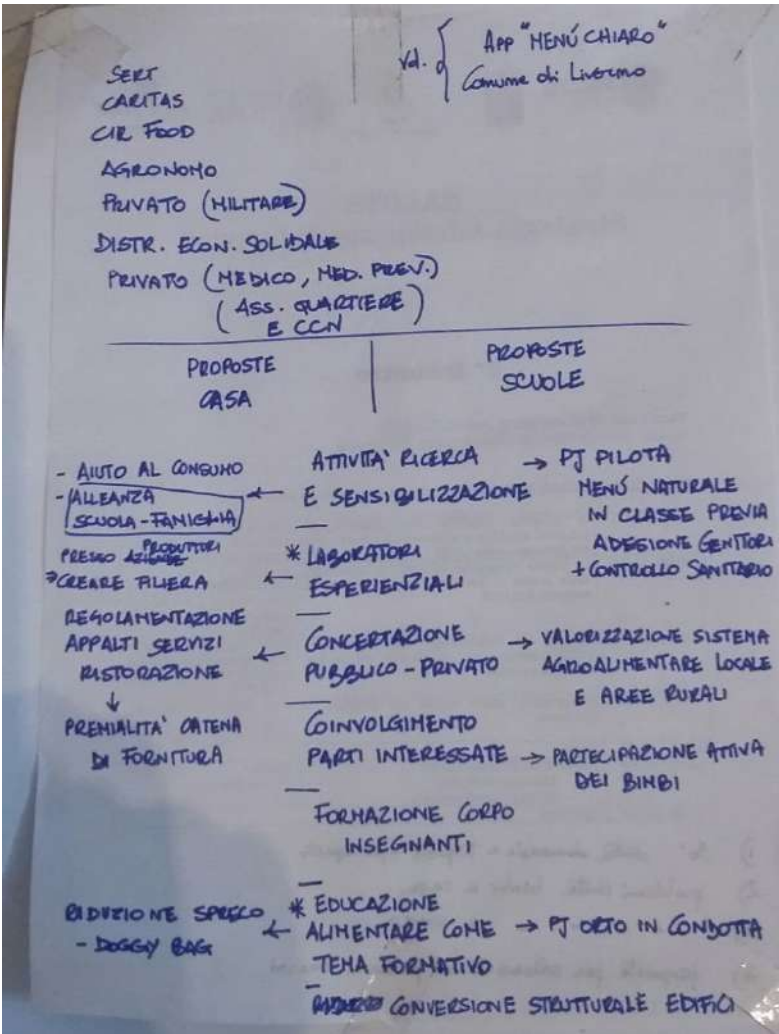 Vd. { APP "MENÚ CHIARO"
Comune di Livorno
SERT
CARITAS
CIR FOOD
AGRONOMO
PRIVATO (MILITARE)
DISTR. ECON. SOLIDALE
PRIVATO (MEDICO, MED. PREV.)
(ASS. QUARTIERE
E CCN)
PROPOSTE
CASA
PROPOSTE
SCUOLE
- AIUTO AL CONSUMO
- ALLEANZA
SCUOLA - FAMIGLIA
PRODUTTORI
PRESSO AZIENDE
→ CREARE FILIERA
REGOLAMENTAZIONE
APPALTI SERVIZI
RISTORAZIONE
↓
PREMIALITA' CATENA
DI FORNITURA
RIDUZIONE SPRECO
- DOGGY BAG
ATTIVITA' RICERCA
← E SENSIBILIZZAZIONE
* LABORATORI
← ESPERIENZIALI
← CONCERTAZIONE
PUBBLICO - PRIVATO
COINVOLGIMENTO
PARTI INTERESSATE
FORMAZIONE CORPO
INSEGNANTI
* EDUCAZIONE
← ALIMENTARE COME
TEMA FORMATIVO
CONVERSIONE STRUTTURALE EDIFICI
→ PJ PILOTA
MENÚ NATURALE
IN CLASSE PREVIA
ADESIONE GENITORI
+ CONTROLLO SANITARIO
→ VALORIZZAZIONE SISTEMA
AGROALIMENTARE LOCALE
E AREE RURALI
→ PARTECIPAZIONE ATTIVA
DEI BIMBI
→ PJ ORTO IN CONDOTTA